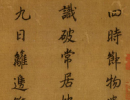 四時飾物
識破常居
九日籬邊